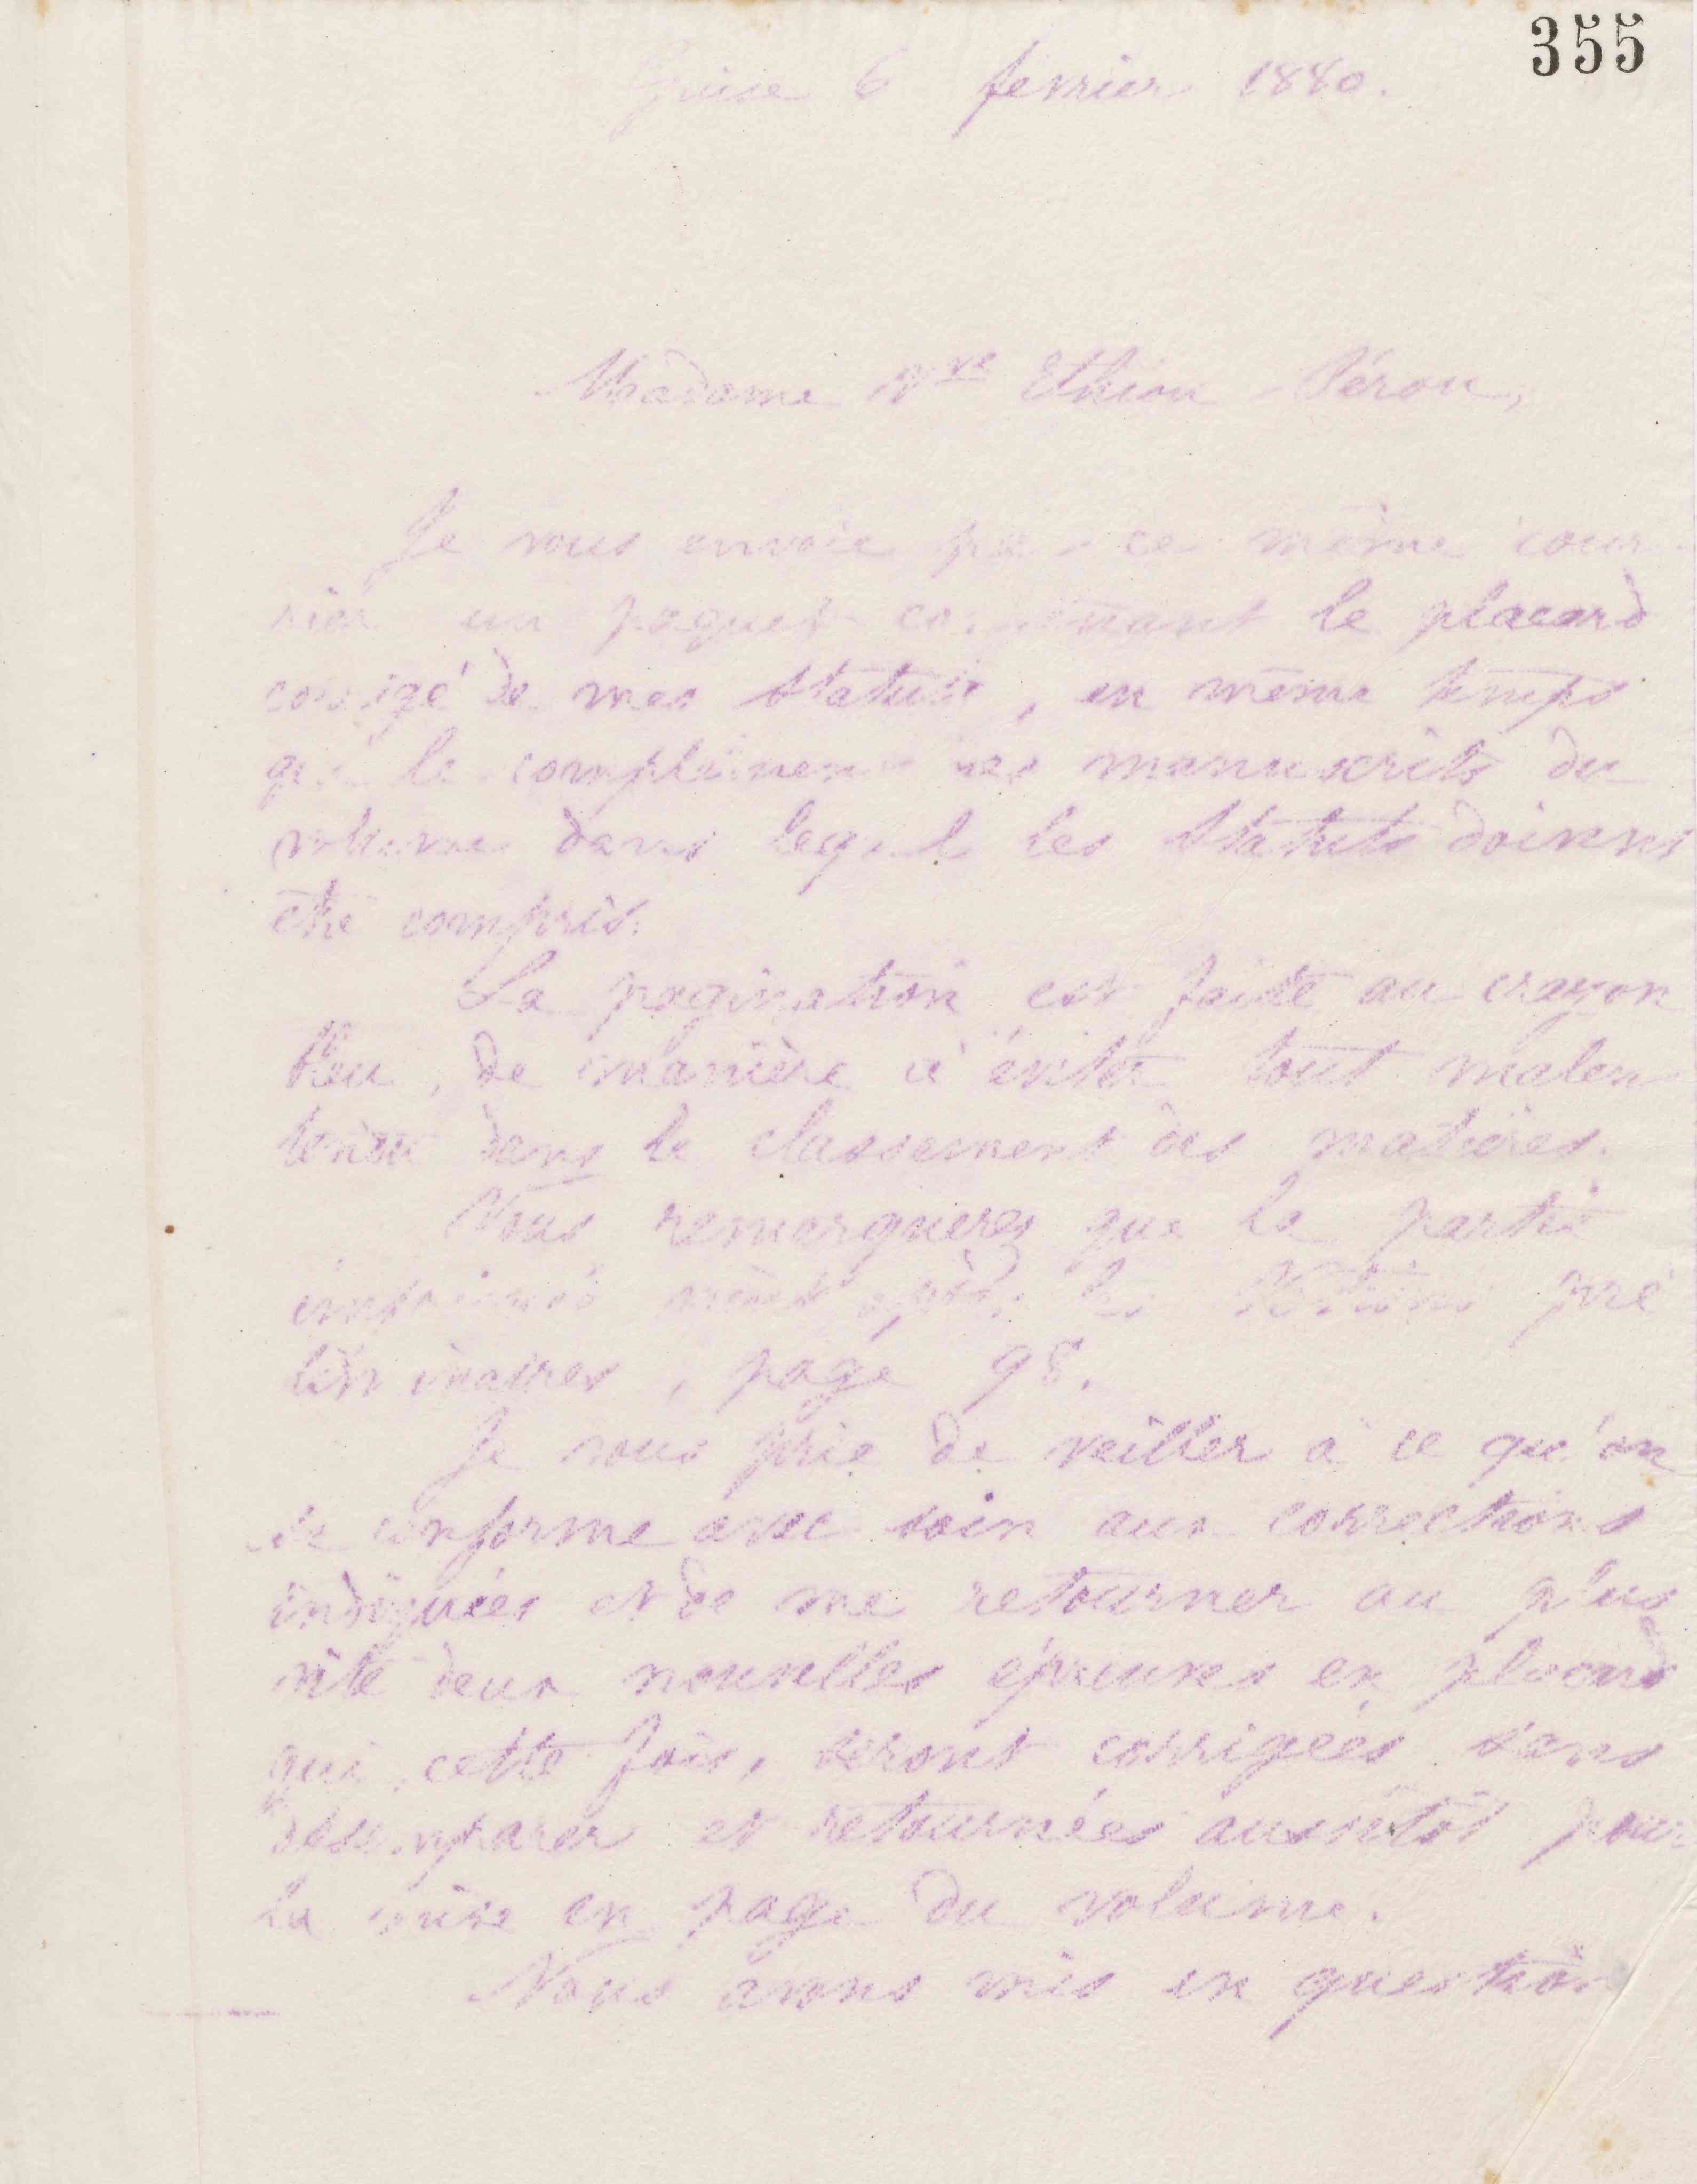 355
Guise 6 février 1880.
Madame Vve Ethion-Pérou,
Je vous envoie par ce même cour
rier un paquet contenant le placard
corrigé de mes statuts, en même temps
que le complément des manuscrits du
volume dans lequel les Statuts doivent
être compris.
La pagination est faite au crayon
bleu, de manière à éviter tout malen
tendu dans le classement des matières.
Vous remarquerez que la partie
imprimée vient après les Notions pré
liminaires, page 98.
Je vous prie de veiller à ce qu'on
se conforme avec soin aux corrections
indiquées et de me retourner au plus
vite deux nouvelles épreuves en placard
qui, cette fois, seront corrigées sans
désemparer et retournées aussitôt pour
la mise en page du volume.
Nous avons mis en question